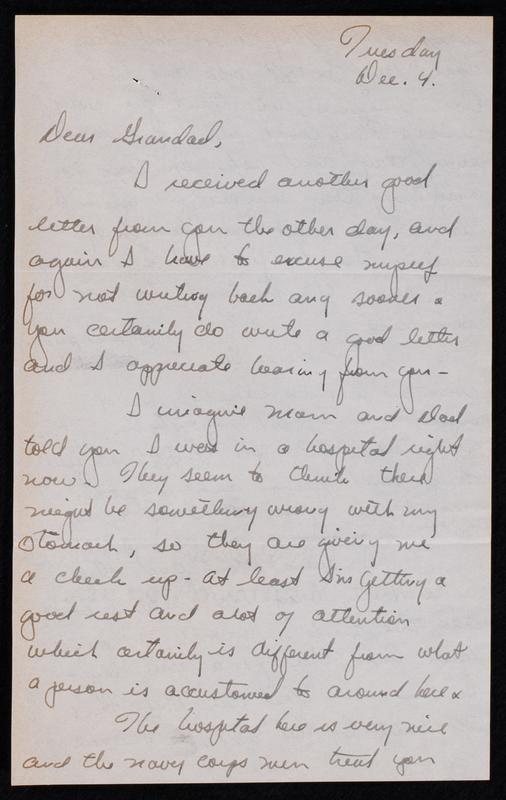 Tuesday
Dec. 4.
Dear Grandad,
I received another good
letter from you the other day, and
again I have to excuse myself
for not writing back any sooner.
you certainily do write a good letter
and I appreciate hearing from you-
I imagine Mom and Dad
told you I was in a hospital right
now. They seem to think there
might be something wrong with my
stomach, so they are giving me
a check up - at least I'm getting a
good rest and alot of attention
which certainily is different from what
a person is accustomed to around here.
The hospital here is very nice
and the navy corps men treat you